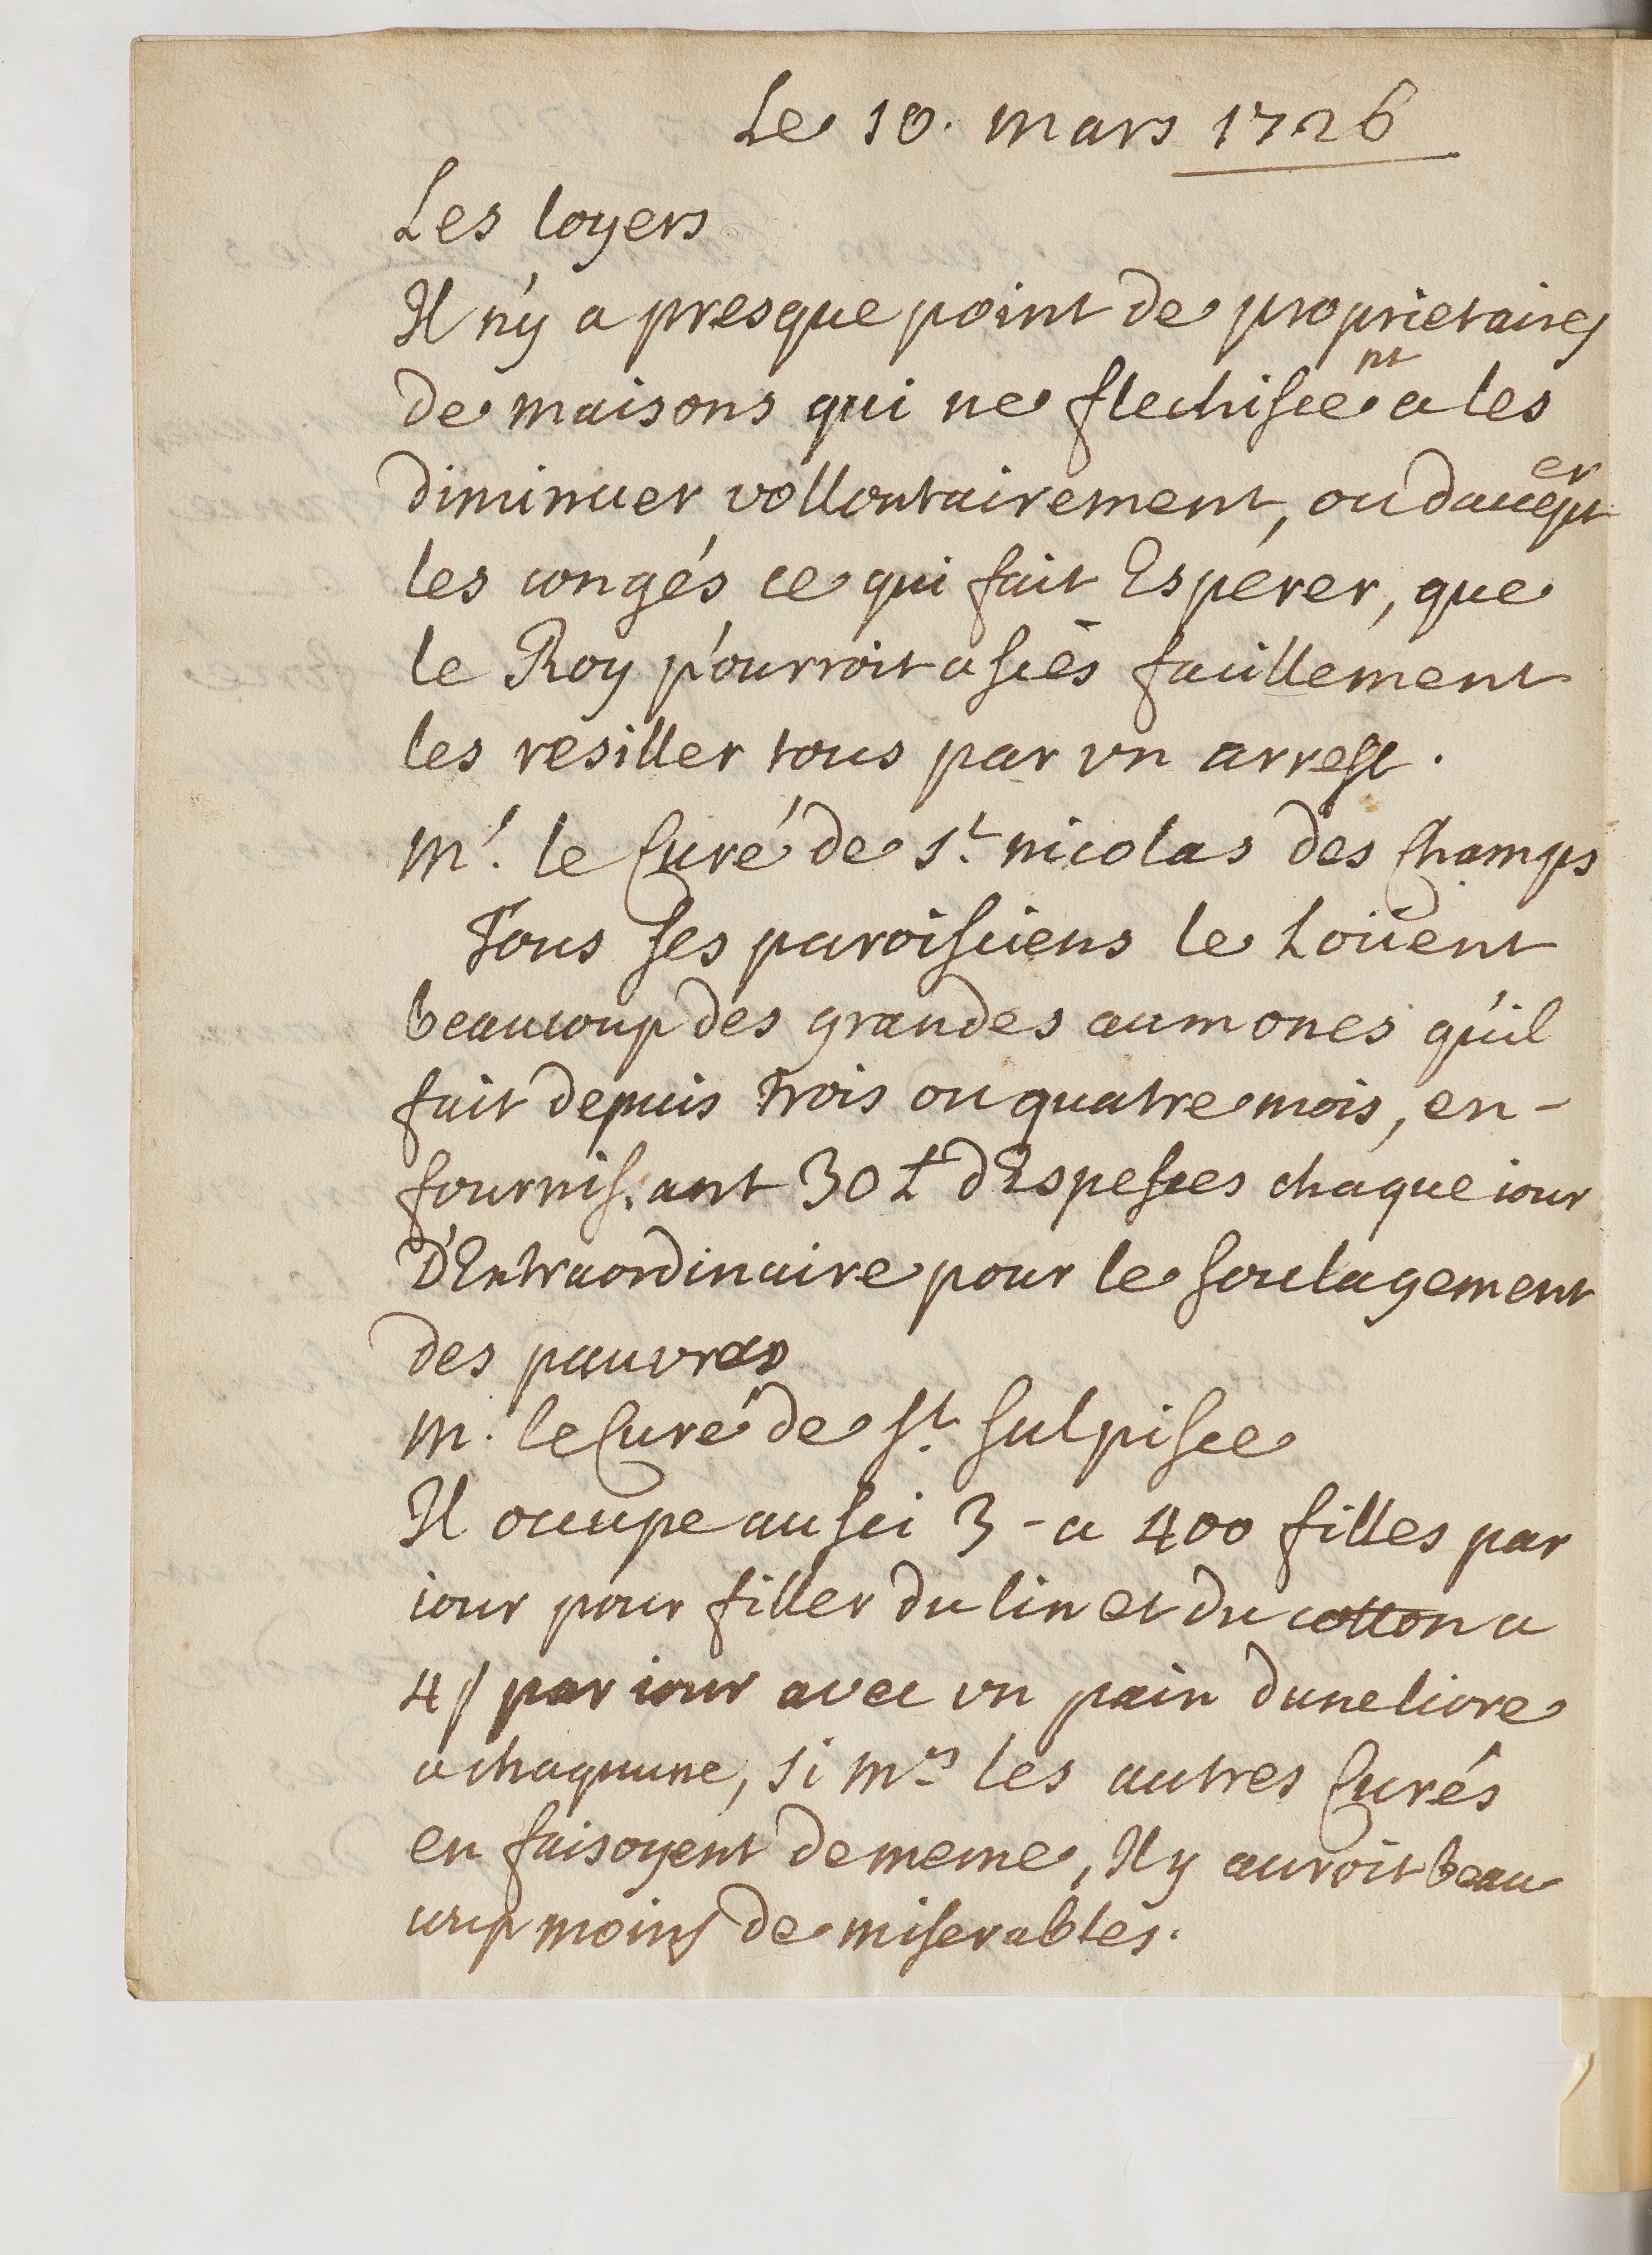 Le 10. mars 1726
Les loyers
Il n'y a presque point de proprietaires
de maisons qui ne flechissent a les
diminuer vollontairement, ou daccepter
les congés ce qui fait Espérer, que
le Roy pourroit assés facillement
les resiller tous par un arrest.
mr. le Curé de st. nicolas des Champs
Tous ses paroissiens le Loüent
beaucoup des grandes aumones qu'il
fait depuis trois ou quatre mois, en-
fournissant 30 ₶ d'Espesses chaque iour
D'Extraordinaire pour le soulagement
des pauvres
m. le Curé de st. sulpisse
Il occupe aussi 3 - a 400 filles par
iour pour filler du lin et du cotton a
4 s par iour avec un pain dune livre
a chaqunne, si mrs les autres Curés
en faisoyent de meme, Il y auroit beau
coup moins de miserables.